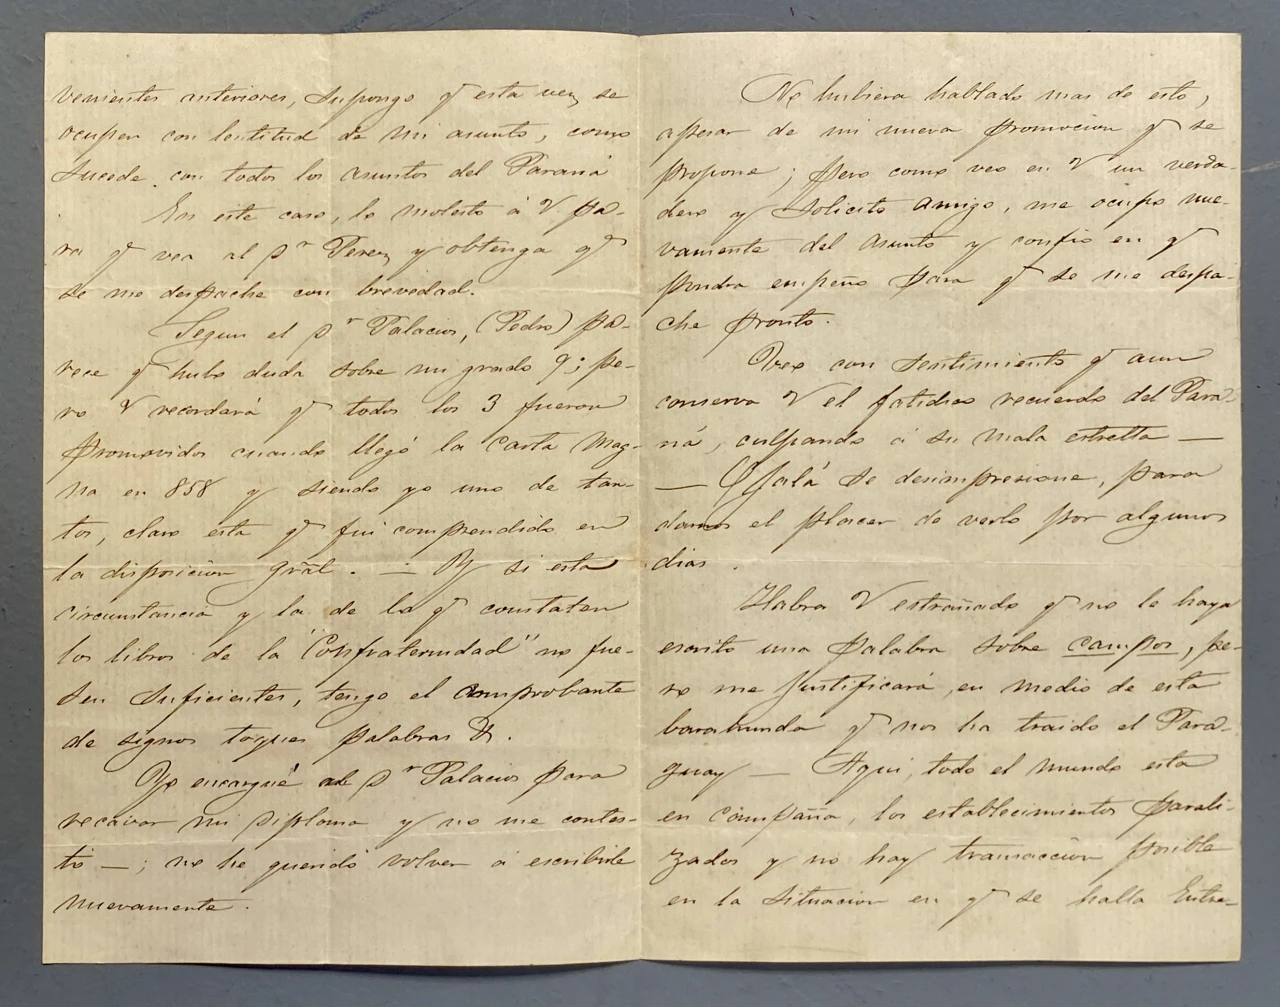 venientes anteriores, supongo q̃ esta vez se
ocupen con lentitud de mi asunto, como
sucede con todos los asuntos del Paraná
En este caso, lo molesto á V pa-
ra q̃ vea al Sr Perez y obtenga q̃
se me despache con brevedad.
Segun el Sr Palacios, (Pedro) pa-
rece q̃ hubo duda sobre mi grado 9; pe-
ro V recordará q̃ todos los 3 fueron
promovidos cuando llegó la Carta Mag-
na en 858 y siendo yo uno de tan-
tos, claro esta q̃ fui comprendido en
la disposicion gral. — Y si esta
circunstancia y la de lo q̃ constatan
los libros de la "Confraternidad" no fue-
sen suficientes, tengo el comprobante
de signos toques palabras &.
Yo encargué al Sr Palacios para
recavar mi Diploma y no me contes-
tó —; no he querido volver á escribirle
nuevamente.
No hubiera hablado mas de esto,
apesar de mi nueva promocion q̃ se
propone; pero como veo en V un verda-
dero y solicito amigo, me ocupo nue-
vamente del asunto y confio en q̃
pondra empeño para q̃ se me despa-
che pronto.
Veo con sentimiento q̃ aun
conserva V el fatidico recuerdo del Para-
ná, culpando á su mala estrella —
— Ojalá se desimpresione, para
darnos el placer de verlo por algunos
dias.
Habra V estrañado q̃ no le haya
escrito una palabra sobre campos, pe-
ro me justificará en medio de esta
barahunda q̃ nos ha traido el Para-
guay — Aqui, todo el mundo esta
en campaña, los establecimientos parali-
zados y no hay transaccion posible
en la situacion en q̃ se halla Entre-